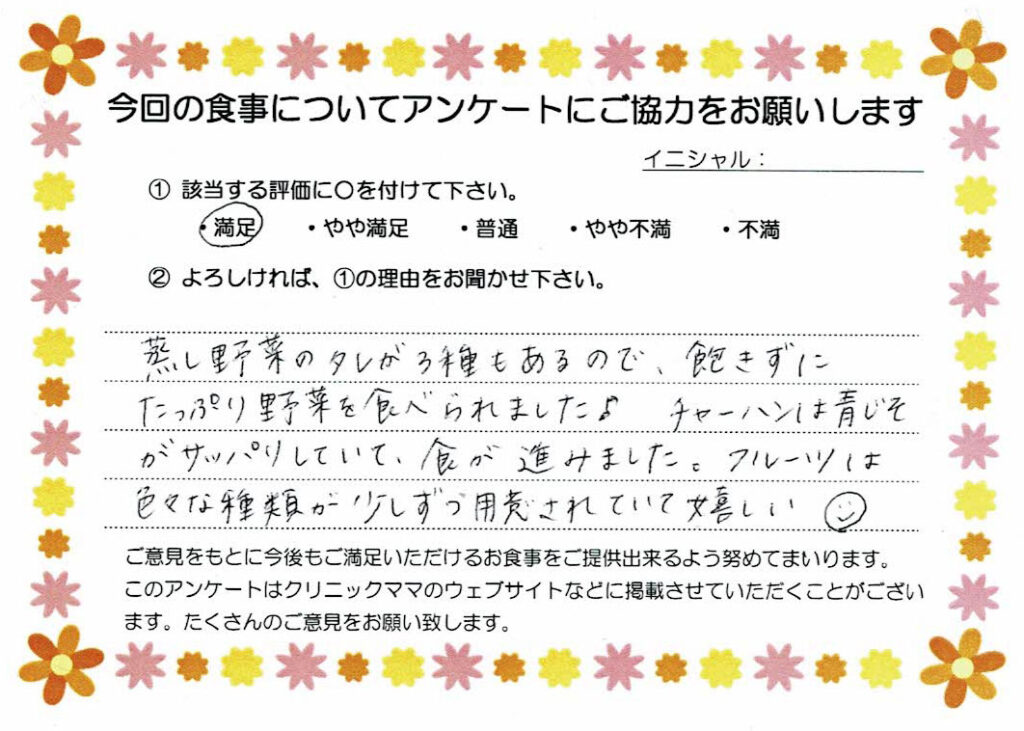 今回の食事についてアンケートにご協力をお願いします
イニシャル：
① 該当する評価に○を付けて下さい。
・満足 ・やや満足 ・普通 ・やや不満 ・不満
② よろしければ、①の理由をお聞かせ下さい。
蒸し野菜のタレが3種もあるので、飽きずに
たっぷり野菜を食べられました♪ チャーハンは青じそ
がサッパリしていて、食が進みました。フルーツは
色々な種類が少しずつ用意されていて嬉しい☺
ご意見をもとに今後もご満足いただけるお食事をご提供出来るよう努めてまいります。
このアンケートはクリニックママのウェブサイトなどに掲載させていただくことがござい
ます。たくさんのご意見をお願い致します。